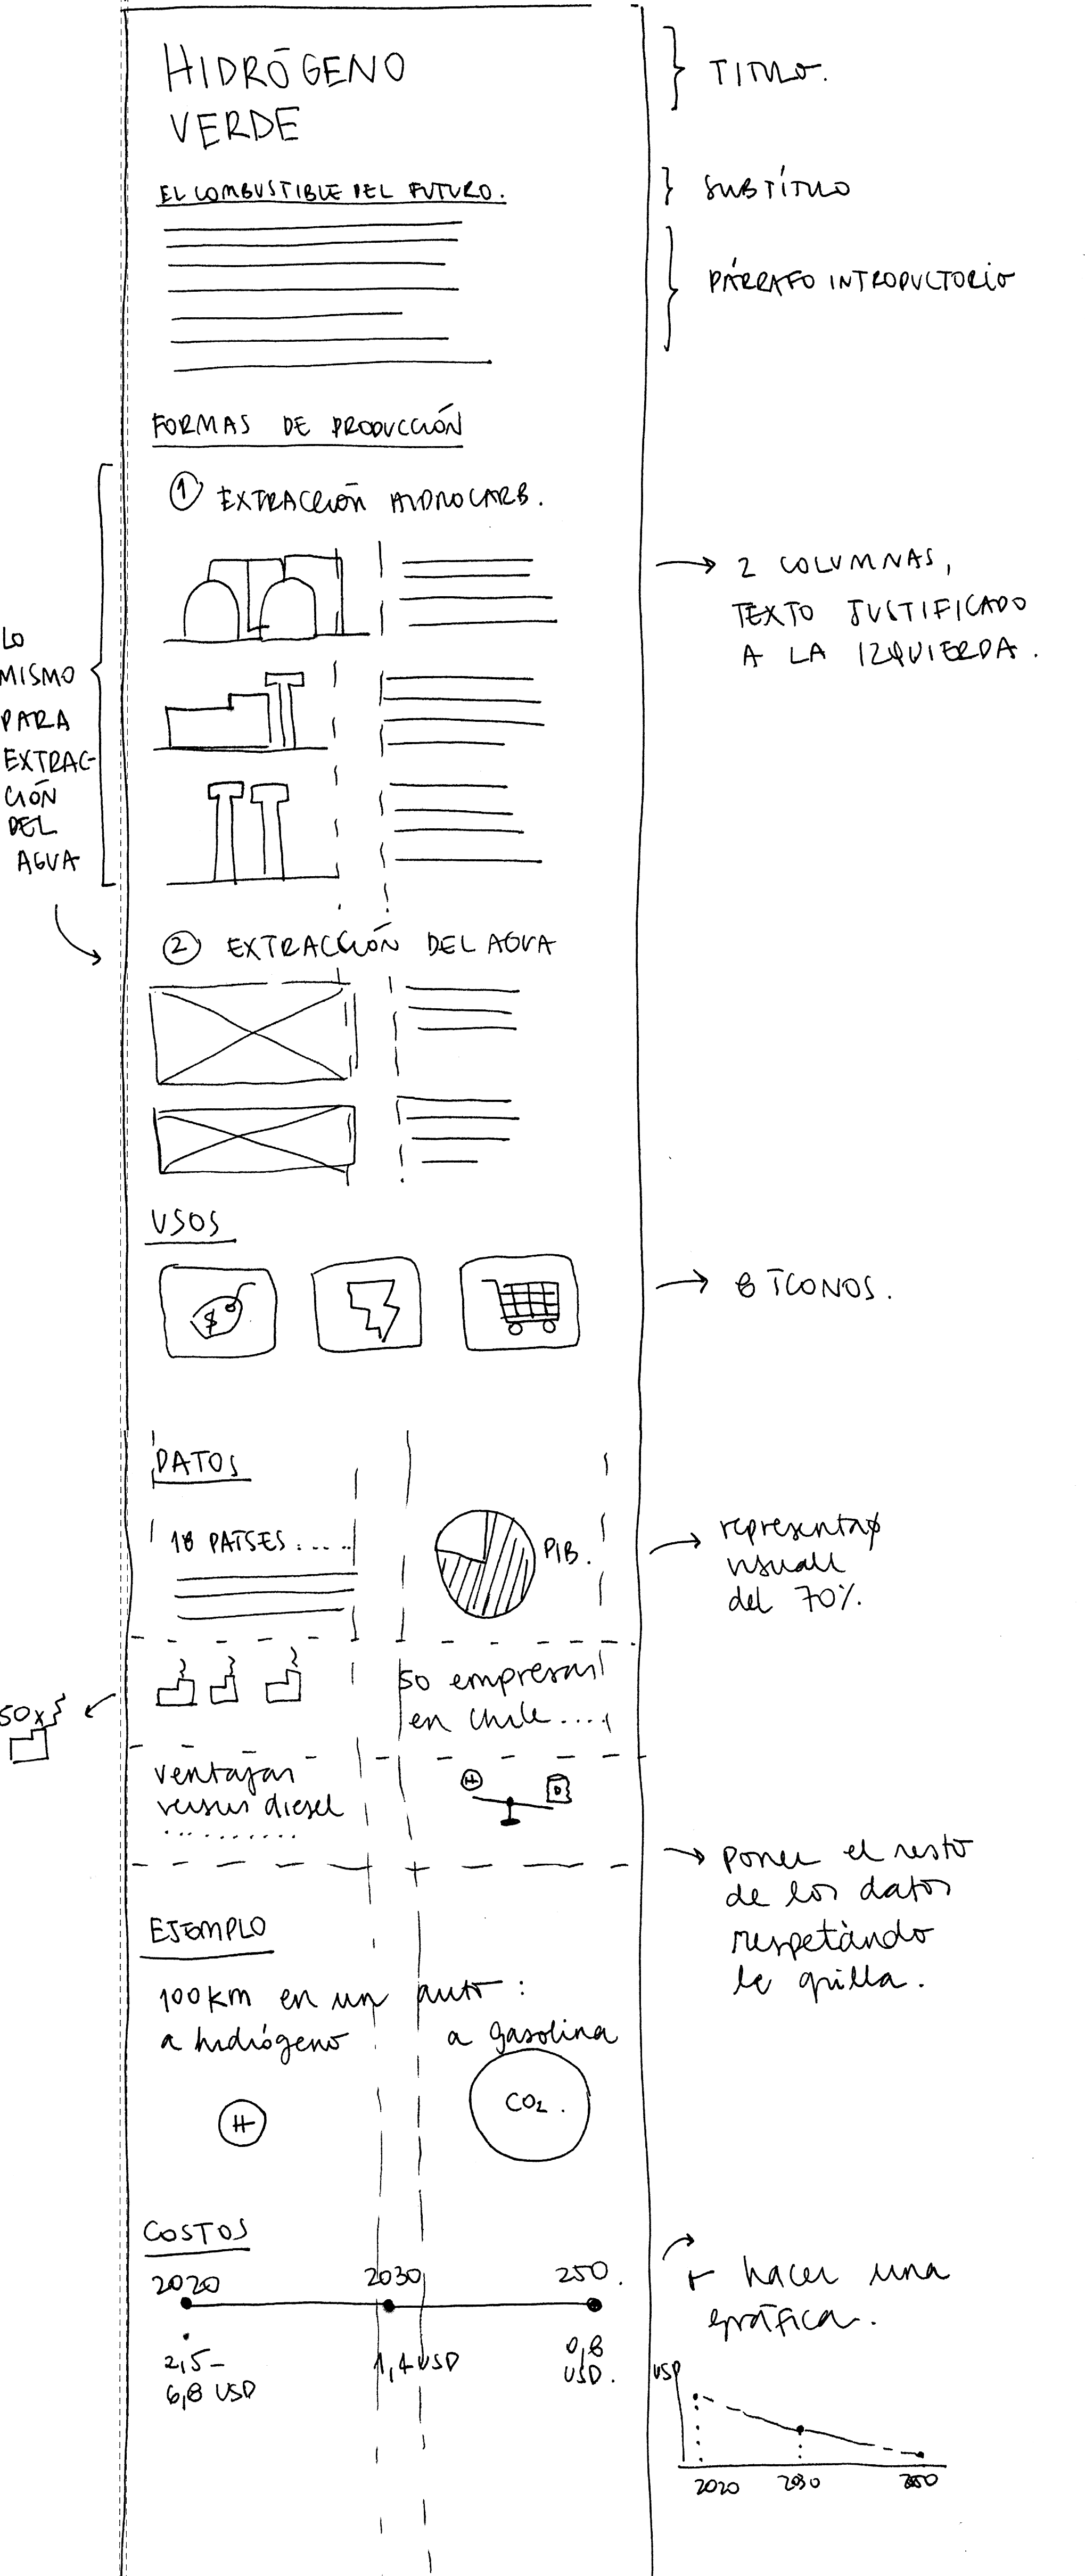 HIDRÓGENO
VERDE
} TITULO.
EL COMBUSTIBLE DEL FUTURO.
} SUBTÍTULO
} PÁRRAFO INTRODUCTORIO
FORMAS DE PRODUCCIÓN
① EXTRACCIÓN HIDROCARB.
→ 2 COLUMNAS,
TEXTO JUSTIFICADO
A LA IZQUIERDA.
LO
MISMO
PARA
EXTRAC-
CIÓN
DEL
AGUA
② EXTRACCIÓN DEL AGUA
USOS
$
→ 8 ÍCONOS.
DATOS
18 PAÍSES.....
PIB.
→ representar
visual
del 70%.
50 empresas
en chile....
50x
ventajas
versus diesel
..........
H
D
→ poner el resto
de los datos
respetando
la grilla.
EJEMPLO
100km en un auto:
a hidrógeno
a gasolina
H
CO2.
COSTOS
2020
2030
250.
2,5-
6,8 USD
1,4 USD
0,8
USD.
+ hacer una
gráfica.
USD
2020
2030
250